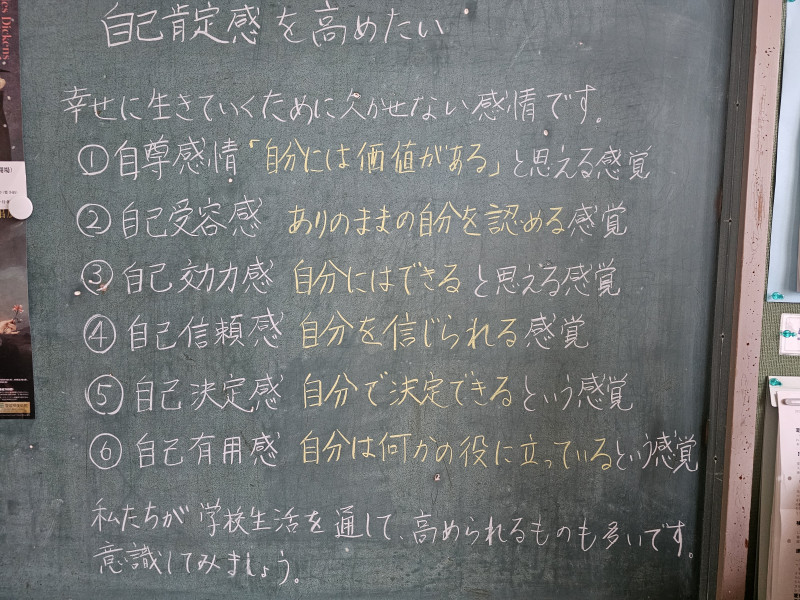 自己肯定感を高めたい
幸せに生きていくために欠かせない感情です。
①自尊感情「自分には価値がある」と思える感覚
②自己受容感 ありのままの自分を認める感覚
③自己効力感 自分にはできると思える感覚
④自己信頼感 自分を信じられる感覚
⑤自己決定感 自分で決定できるという感覚
⑥自己有用感 自分は何かの役に立っているという感覚
私たちが学校生活を通して、高められるものも多いです。
意識してみましょう。
es Dickens